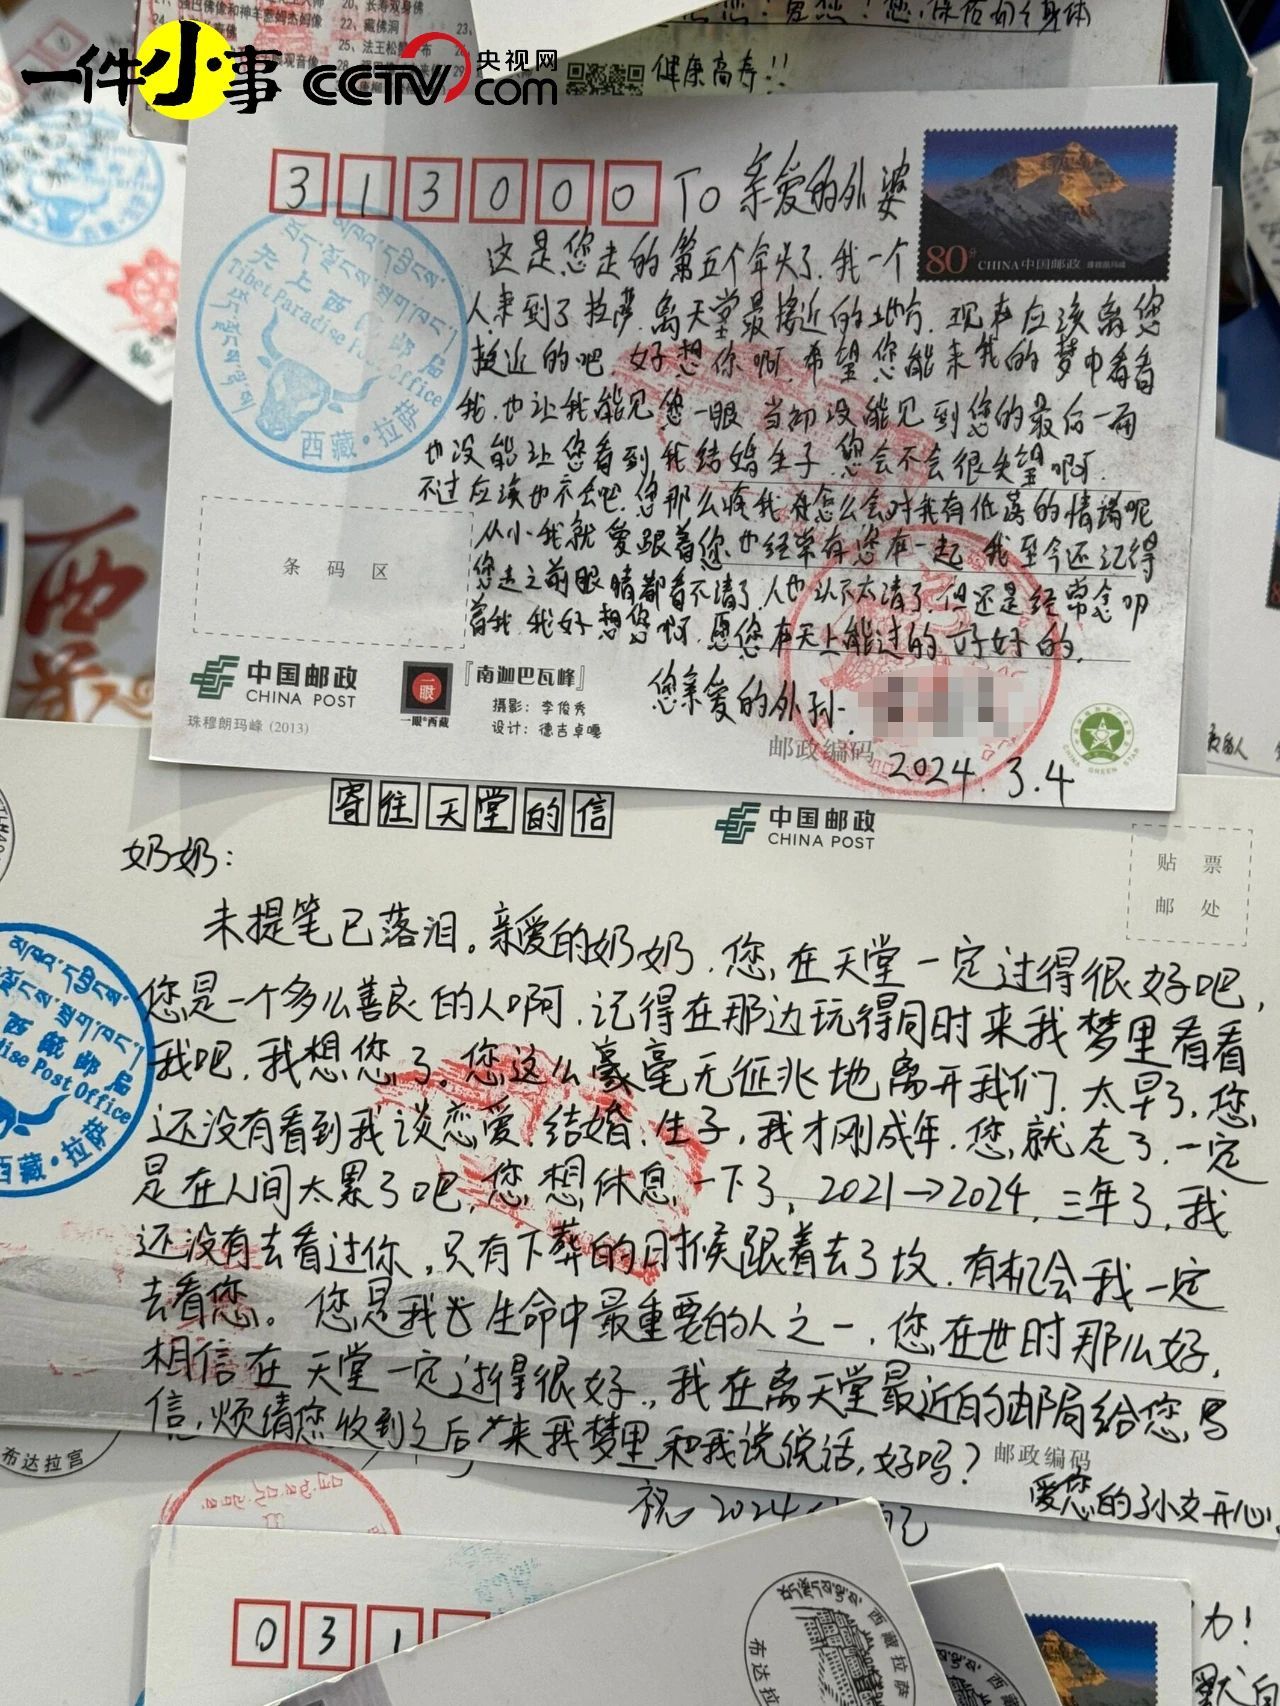 一件小事 CCTV.com 央视网
21、强巴佛像和神羊
20、长寿双身佛
22、藏佛洞
23、
24、
25、法王松
您,保佑
身体
健康高寿!!
313000
To 亲爱的外婆
这是您走的第五个年头了.我一个
人来到了拉萨.离天堂最接近的地方.现在应该离您
挺近的吧.好想你啊.希望您能来我的梦中看看
我.也让我能见您一眼.当初没能见到您的最后一面
也没能让您看到我结婚生子.您会不会很失望啊.
不过应该也不会吧.您那么疼我.在怎么会对我有低落的情绪呢
从小我就爱跟着您.也经常和您在一起.我至今还记得
您走之前眼睛都看不清了.人也认不太清了.但还是经常念叨
着我.我好想您啊.愿您在天上能过的 好好的.
您亲爱的外孙.
2024.3.4
80分 CHINA 中国邮政 珠穆朗玛峰
天上西藏邮局
Tibet Paradise Post Office
西藏·拉萨
条码区
中国邮政
CHINA POST
珠穆朗玛峰 (2013)
一眼
一眼®西藏
『南迦巴瓦峰』
摄影: 李俊秀
设计: 德吉卓嘎
邮政编码
CHINA GREEN STAR
寄往天堂的信
中国邮政
CHINA POST
贴票
邮处
奶奶:
未提笔已落泪。亲爱的奶奶.您,在天堂一定过得很好吧,
您是一个多么善良的人啊.记得在那边玩得同时来我梦里看看
我吧.我想您了。您这么毫毫无征兆地离开我们.太早了,您,
还没有看到我谈恋爱.结婚.生子,我才刚成年.您,就走了.一定
是在人间太累了吧,您,想休息一下了,2021→2024,三年了,我
还没有去看过你,只有下葬的时候跟着去了坟.有机会我一定
去看您。您是我长生命中最重要的人之一,您在世时那么好,
相信在天堂一定过得很好.,我在离天堂最近的邮局给您,写
信,烦请您收到之后来我梦里和我说说话,好吗?
邮政编码
爱您的孙女开心.
祝 2024
西藏邮局
Paradise Post Office
西藏·拉萨
布达拉宫
031
西藏拉萨
布达拉
力!